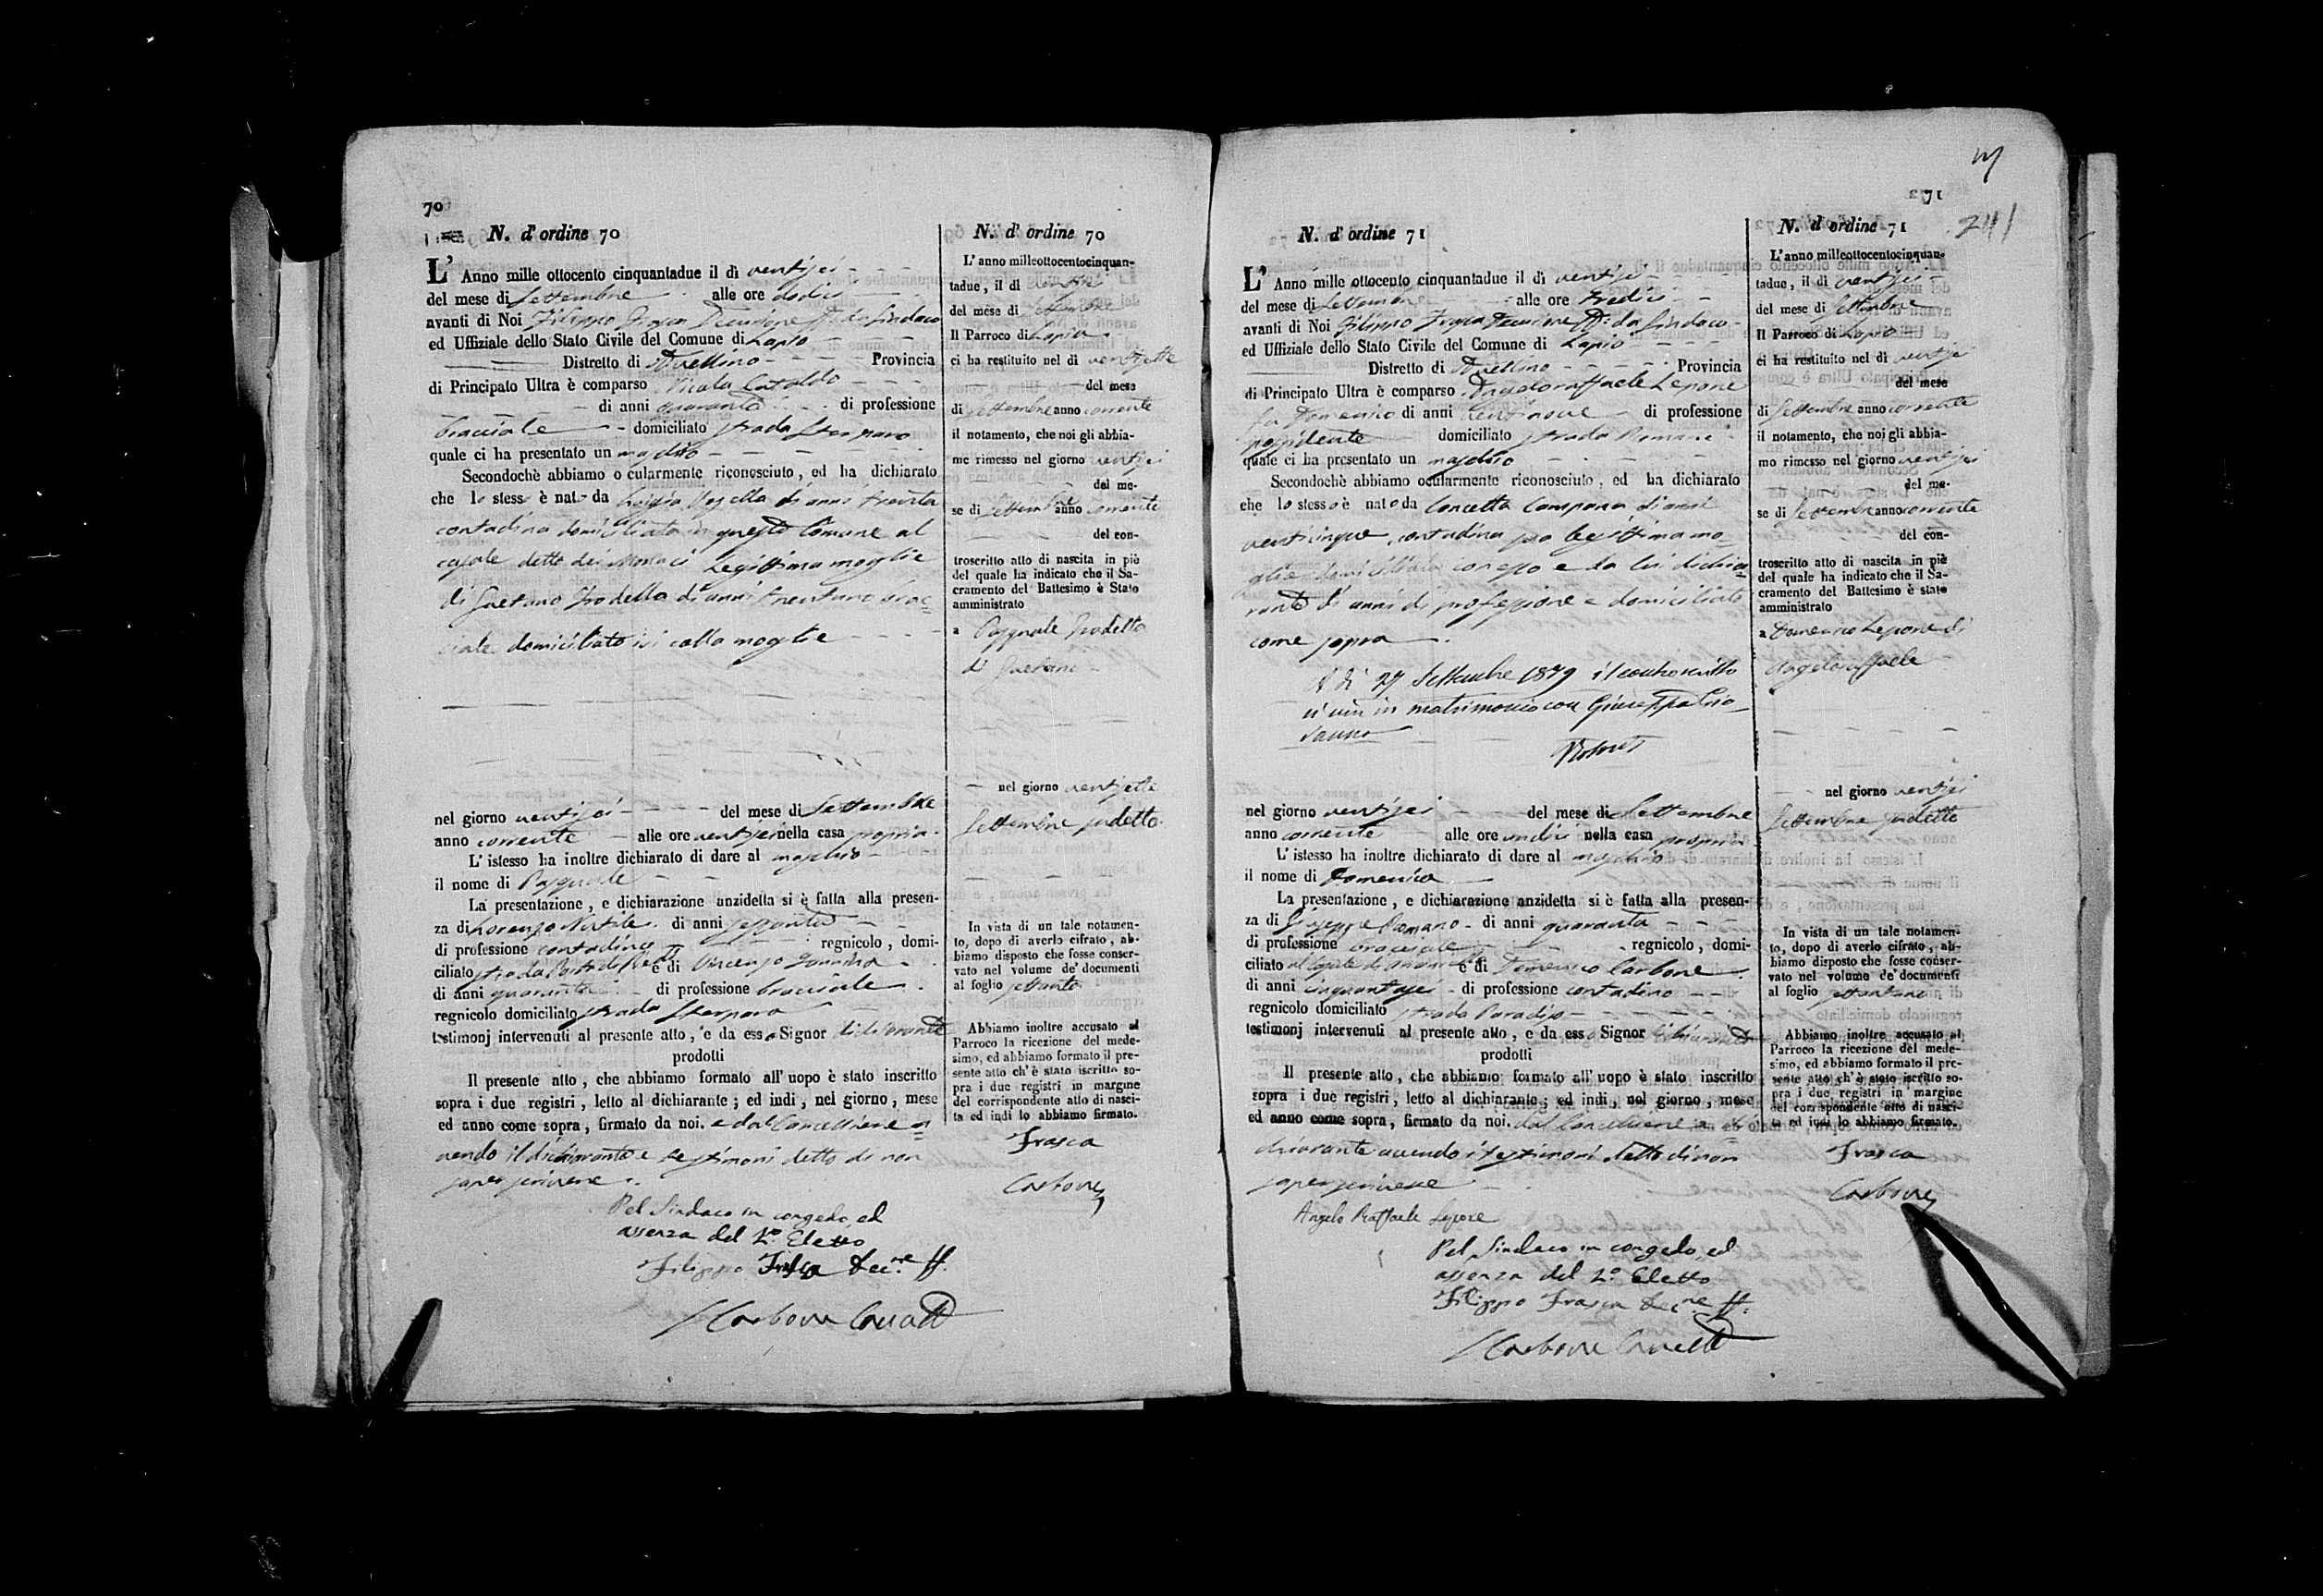 70
N. d' ordine 70
L' Anno mille ottocento cinquantadue il dì ventisei
del mese di Settembre alle ore dodici
avanti di Noi Filippo Frasca Decurione ff. da Sindaco
ed Uffiziale dello Stato Civile del Comune di Lapio
Distretto di Avellino Provincia
di Principato Ultra è comparso Nicola Cataldo
di anni quaranta di professione
bracciale domiciliato strada Sterparo
quale ci ha presentato un maschio
Secondochè abbiamo o cularmente riconosciuto, ed ha dichiarato
che lo stesso è nato da di anni trenta
contadina domiciliata in questo Comune al
casale detto dei Monaci legittima moglie
di Gaetano di anni trentuno brac=
ciale domiciliato ivi colla moglie
nel giorno ventisei del mese di Settembre
anno corrente alle ore nella casa propria
L' istesso ha inoltre dichiarato di dare al maschio
il nome di Pasquale
La presentazione, e dichiarazione anzidetta si è fatta alla presen-
za di Lorenzo di anni
di professione contadino regnicolo, domi-
ciliato strada e di Vincenzo
di anni quaranta di professione bracciale
regnicolo domiciliato strada Sterparo
testimonj intervenuti al presente atto, e da esso Signor dichiarante
prodotti
Il presente atto, che abbiamo formato all' uopo è stato inscritto
sopra i due registri, letto al dichiarante; ed indi, nel giorno, mese
ed anno come sopra, firmato da noi. e dal Cancelliere a=
vendo il dichiarante e testimoni detto di non
saper scrivere
Pel Sindaco in congedo, ed
assenza del 2.º Eletto
Filippo Frasca Dec.ne ff.
Carbone
N. d' ordine 70
L' anno milleottocentocinquan-
tadue, il dì
del mese di Settembre
Il Parroco di Lapio
ci ha restituito nel dì ventisette
del mese
di Settembre anno corrente
il notamento, che noi gli abbia-
mo rimesso nel giorno ventisei
del me-
se di Settembre anno corrente
del con-
troscritto atto di nascita in piè
del quale ha indicato che il Sa-
cramento del Battesimo è Stato
amministrato
a Pasquale
di Gaetano
nel giorno ventisette
Settembre sudetto
In vista di un tale notamen-
to, dopo di averlo cifrato, ab-
biamo disposto che fosse conser-
vato nel volume de' documenti
al foglio settanta
Abbiamo inoltre accusato al
Parroco la ricezione del mede-
simo, ed abbiamo formato il pre-
sente atto ch' è stato iscritto so-
pra i due registri in margine
del corrispondente atto di nasci-
ta ed indi lo abbiamo firmato.
Frasca
Carbone
71
241
N. d' ordine 71
L' Anno mille ottocento cinquantadue il dì ventisei
del mese di Settembre alle ore tredici
avanti di Noi Filippo Frasca Decurione ff. da Sindaco
ed Uffiziale dello Stato Civile del Comune di Lapio
Distretto di Avellino Provincia
di Principato Ultra è comparso Angeloraffaele Lepore
fu Domenico di anni ventinove di professione
possidente domiciliato strada Romani
quale ci ha presentato un maschio
Secondochè abbiamo ocularmente riconosciuto, ed ha dichiarato
che lo stesso è nato da Concetta Campana di anni
venticinque, contadina sua legittima mo=
glie domiciliata con esso e da lui dichia=
rante di anni di professione e domiciliato
come sopra
A dì 27 Settembre 1879 il controscritto
si unì in matrimonio con Giuseppa
nel giorno ventisei del mese di Settembre
anno corrente alle ore undici nella casa propria
L' istesso ha inoltre dichiarato di dare al maschio
il nome di Domenico
La presentazione, e dichiarazione anzidetta si è fatta alla presen-
za di Giuseppe Romano di anni quaranta
di professione bracciale regnicolo, domi-
ciliato al casale di e di Domenico Carbone
di anni cinquantasei di professione contadino
regnicolo domiciliato strada Paradiso
testimonj intervenuti al presente atto, e da esso Signor dichiarante
prodotti
Il presente atto, che abbiamo formato all' uopo è stato inscritto
sopra i due registri, letto al dichiarante; ed indi, nel giorno, mese
ed anno come sopra, firmato da noi. dal Cancelliere e di=
chiarante avendo i testimoni detto di non
saper scrivere
Angelo Raffaele Lepore
Pel Sindaco in congedo, ed
assenza del 2.º Eletto
Filippo Frasca Dec.ne ff.
Carbone
N. d' ordine 71
L' anno milleottocentocinquan-
tadue, il dì ventisei
del mese di Settembre
Il Parroco di Lapio
ci ha restituito nel dì ventisei
del mese
di Settembre anno corrente
il notamento, che noi gli abbia-
mo rimesso nel giorno ventisei
del me-
se di Settembre anno corrente
del con-
troscritto atto di nascita in piè
del quale ha indicato che il Sa-
cramento del Battesimo è stato
amministrato
a Domenico Lepore di
Angeloraffaele
nel giorno ventisei
Settembre sudetto
In vista di un tale notamen-
to, dopo di averlo cifrato, ab-
biamo disposto che fosse conser-
vato nel volume de' documenti
al foglio settantuno
Abbiamo inoltre accusato al
Parroco la ricezione del mede-
simo, ed abbiamo formato il pre-
sente atto ch' è stato iscritto so-
pra i due registri in margine
del corrispondente atto di nasci-
ta ed indi lo abbiamo firmato.
Frasca
Carbone